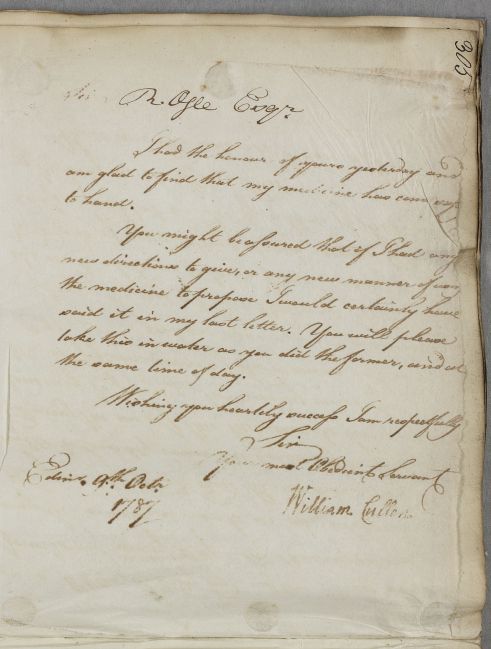 305
R. Ogle Esqr.
I had the honour of yours yesterday and
am glad to find that my medicine has come safe
to hand.
You might be assured that if I had any
new directions to give, or any new manner of using
the medicine to propose I would certainly have
said it in my last letter. You will please
take this in water as you did the former, and at
the same time of day.
Wishing you heartily success I am respectfully
Sir
Your most Obedient Servant
William Cullen
Edinr. 9th Octr.
1787